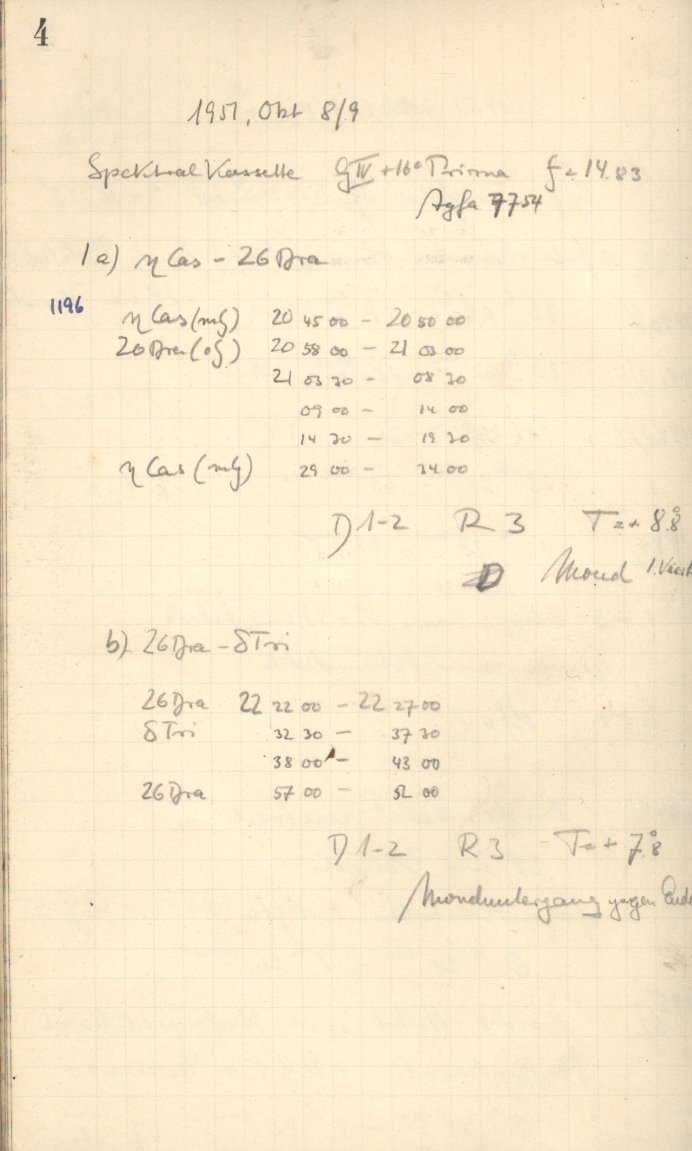 4
1951, Okt 8/9
Spektral Kassette G IV + 16° Prisma f = 14.83
Agfa 7754
1 a) η Cas - 26 Dra
1196
η Cas (mG) 20 45 00 - 20 50 00
26 Dra (oG) 20 58 00 - 21 03 00
21 03 30 - 08 30
09 00 - 14 00
14 30 - 19 30
η Cas (mG) 29 00 - 34 00
D 1-2 R 3 T = + 8.°8
Mond 1. Viert
b) 26 Dra - δ Tri
26 Dra 22 22 00 - 22 27 00
δ Tri 32 30 - 37 30
38 00 - 43 00
26 Dra 57 00 - 52 00
D 1-2 R 3 T = + 7.°8
Monduntergang gegen Ende